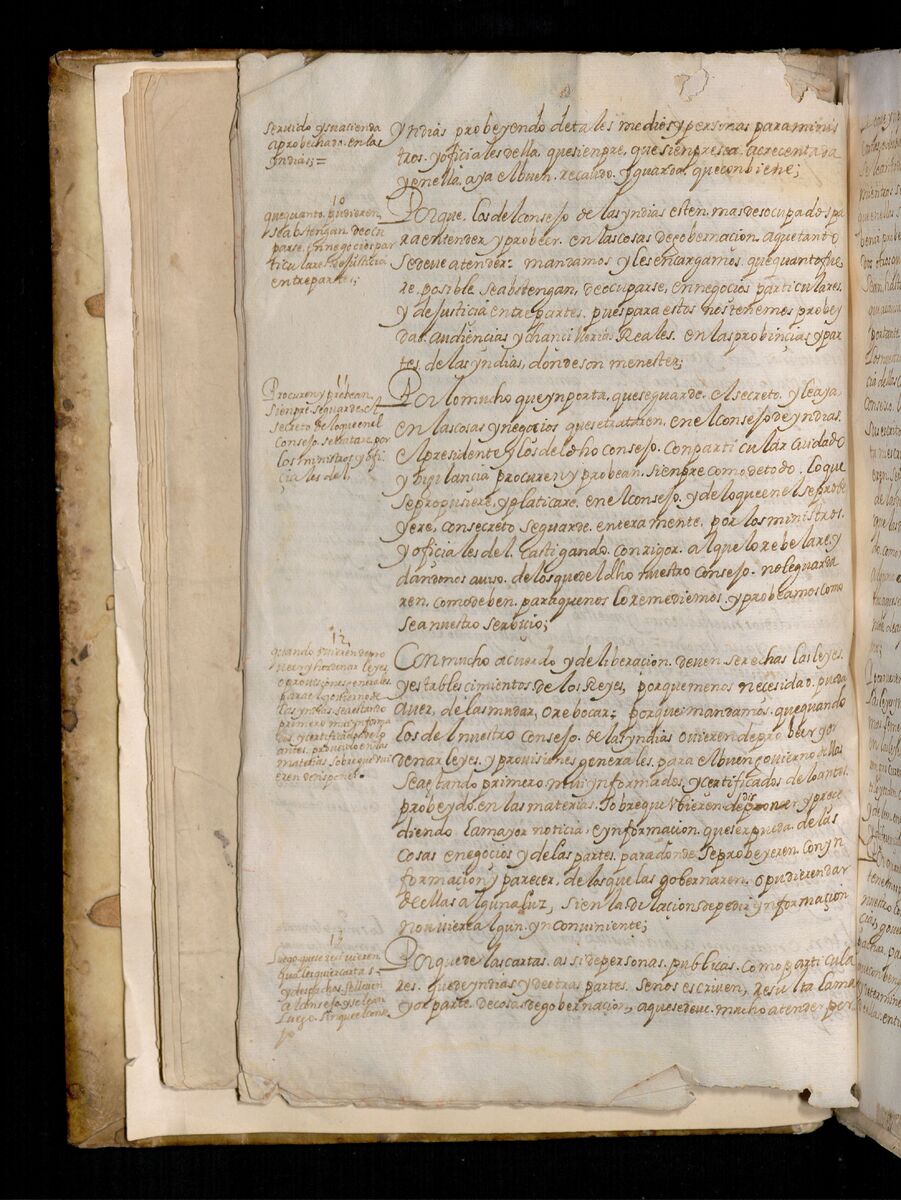 seruido y su acienda
aprobechada. en las
yndias; =
yndias probeyendo de tales medios y personas para minis
tros. y oficiales della, que siempre. que siempre sea. acrecentada
y en ella. aya el buen. recaudo. y guarda. que conbiene;
10
que quanto. pudieren
se abstengan. de ocu
parse. en negocios par
ticulares. de justicia
entre partes;
Porque. los del consejo de las yndias esten. mas desocupados pa
ra entender y probeer. en las cosas de gobernacion. a que tanto
se deue atender: mandamos y les encargamos. que quanto fue
re. posible. se abstengan, de ocuparse, en negocios particulares.
y de justicia entre partes. pues para estos nos tenemos probey
das. audiencias y chancillerias Reales. en las probincias y par
tes. de las yndias, donde son menester;
11
Procuren y probean.
siempre se guarde. el
secreto de lo que en el
consejo. se tratare. por
los ministros y ofi
ciales del.
Por lo mucho que ynporta. que se guarde. el secreto. y le aya.
en las cosas y negocios que se tratten. en el consejo de yndias.
el presidente y los del dho consejo. con particular cuidado
y vigilancia procuren y probean. siempre como de todo. lo que
se propusiere, y platicare. en el consejo. y de lo que en el se probe
yere, con secreto se guarde. enteramente. por los ministros.
y oficiales del. castigando. con rigor. al que lo rebelare. y
dandonos auiso. de los que del dho nuestro consejo. no le guarda
ren. como deben. para que nos lo remediemos. y probeamos como
sea nuestro seruicio;
12
quando ouieren de pro
ueer y hordenar leyes
o prouisiones generales
para el gouierno de
las yndias. sea estando
primero muy ynforma
dos. y certificados de lo
antes. probeido en las
materias sobre que oui
eren de disponer.
Con mucho acuerdo y deliberacion. deuen ser echas las leyes.
y establescimientos de los Reyes, porque menos necesidad. pueda
auer, de las mudar, o rebocar; porque mandamos. que quando
los del nuestro consejo. de las yndias ouieren de probeer y or
denar leyes. y prouisiones generales. para el buen gouierno dellas
sea estando primero. muy ynformados y certificados de lo antes.
probeydo. en las materias. sobre que ubieren de disponer y prece
diendo la mayor noticia. e ynformacion. que ser pueda. de las
cosas e negocios y de las partes. para donde se probeyeren. con yn
formacion y parecer, de los que las gobernaren. o pudieren dar
de ellas alguna luz, si en la dilacion de pedir ynformacion
no uiere algun ynconuiniente;
13
Luego que se reciuieren
quales quier cartas
y despachos. se lleuen
al consejo y se lean
luego. sin que el conse
jo
Porque de las cartas. asi de personas. publicas. como particula
res. que de yndias y de otras partes. se nos escriuen, resulta la ma
yor parte. de cosas de gobernacion, a que se deue. mucho atender por